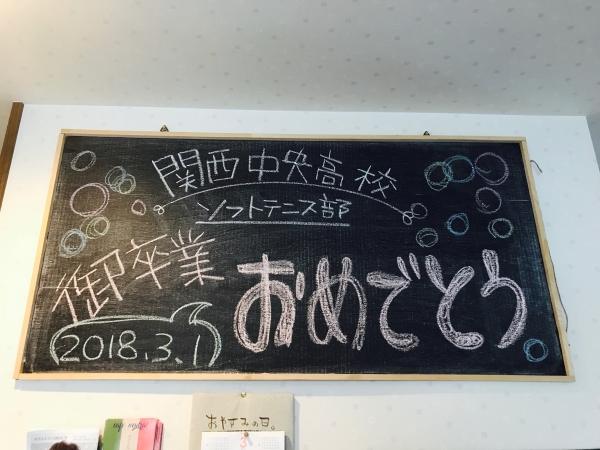 関西中央高校
ソフトテニス部
御卒業
おめでとう
2018.3.1
おやすみの日。
3